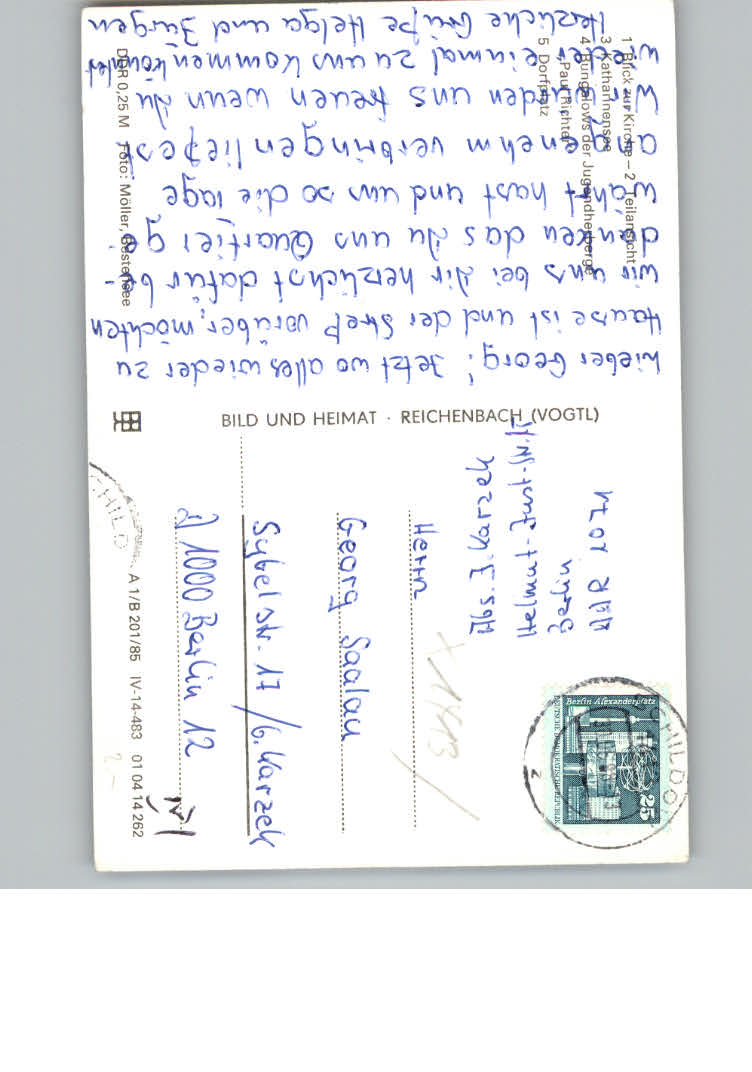 Lieber Georg! Jetzt wo alles wieder zu
Hause ist und der Streß vorüber, möchten
wir uns bei Dir herzlichst dafür be-
danken das du uns Quartier ge-
währt hast und uns so die Tage
angenehm verbringen ließest
Wir würden uns freuen wenn du
wieder einmal zu uns kommen könntest
Herzliche Grüße Helga und Jürgen
1 Blick zur Kirche – 2 Teilansicht
3 Katharinensee
4 Bungalows der Jugendherberge
„Paul Richter“
5 Dorfplatz
DDR 0,25 M Foto: Möller,
BILD UND HEIMAT · REICHENBACH (VOGTL)
Abs. J. Karzek
Helmut-Just-Str.
Berlin
1071
Herrn
Georg Saalau
Sybelstr. 17 / b. Karzek
1000 Berlin 12
A 1/B 201/85 IV-14-483 01 04 14 262
Berlin, Alexanderplatz
DEUTSCHE DEMOKRATISCHE REPUBLIK
25
SCHILDO
SCHILD